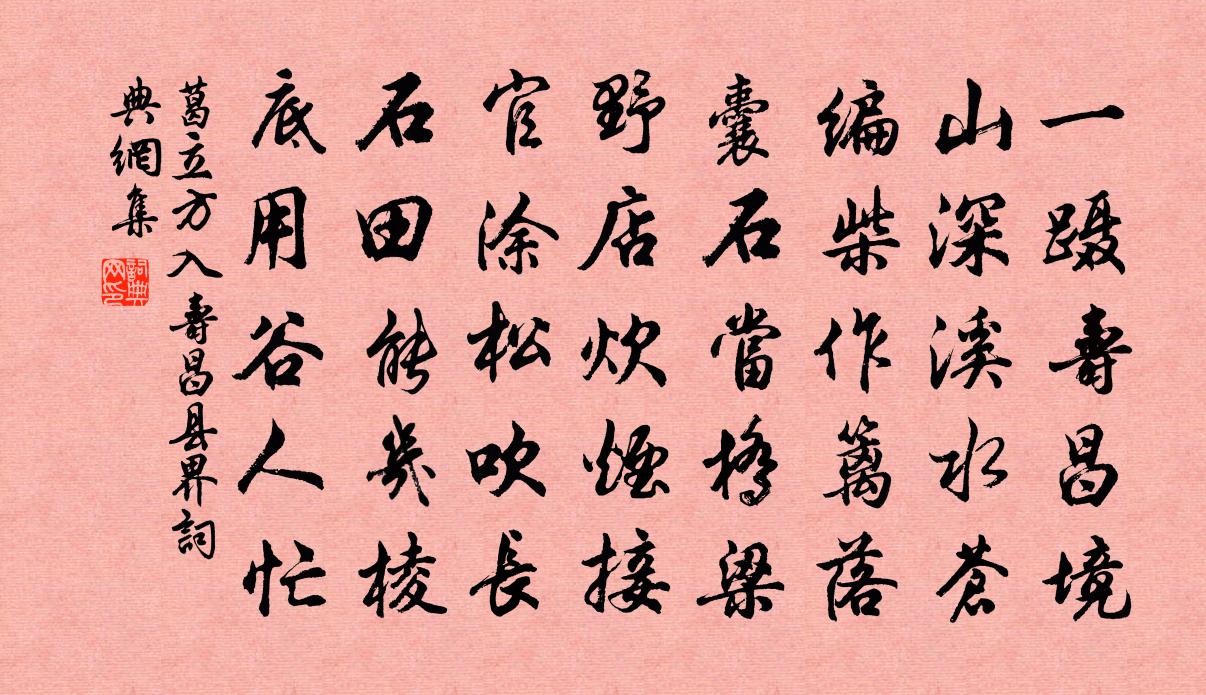 一蹑壽昌境
山深溪水蒼
编柴作籬落
囊石當橋梁
野店炊煙接
官涂松吹長
石田能幾棱
底用谷人忙
葛立方入壽昌县界詞
典網集
詞典
网印